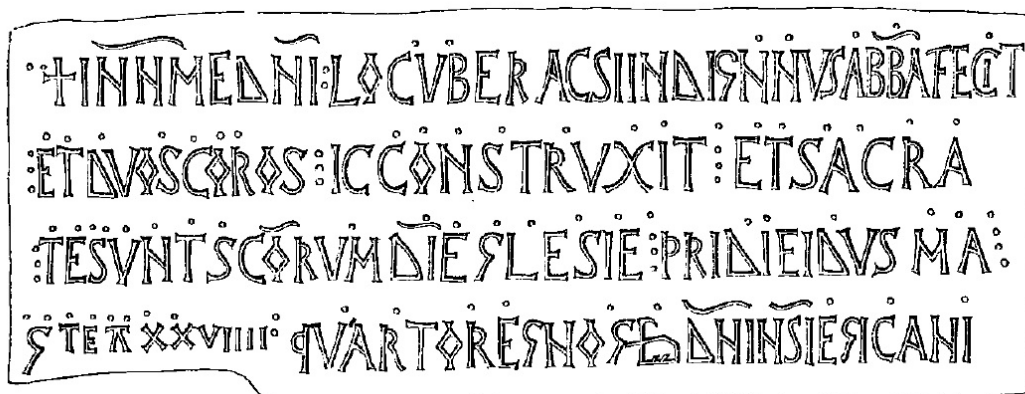 + IN NME DNI : LOCVBER ACSI INDIGNNVS ABBA FECIT
: ET DVOS COROS : IC CONSTRVXIT : ET SACRA
: TE SVNT SCORVM DI EGLESIE : PRIDIE IDVS MA :
G XXVIIII qVARTO REGNO DNI NSI EGICANI